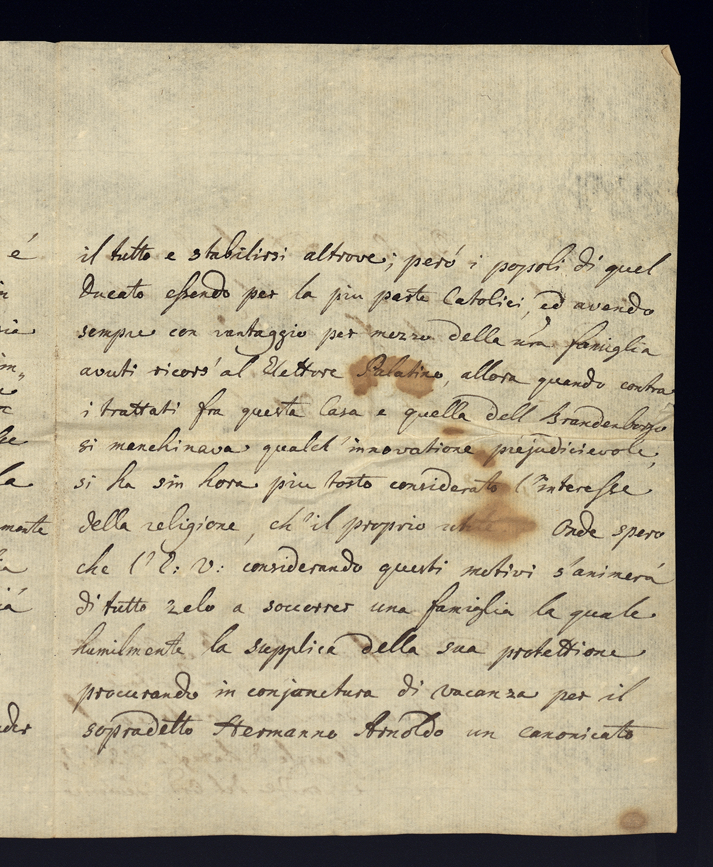 é
il tutto e stabilirsi altrove; peró i popoli di quel
Ducato essendo per la piu parte Catolici, ed avendo
sempre con vantaggio per mezzo della nra famiglia
avuti ricors' al Elettore Palatino, allora quando contra
i trattati fra questa Casa e quella dell Brandenborgo
si manchinava qualch' innovatione prejudicievole,
si ha sin hora piu tosto considerato l'interesse
della religione, ch'il proprio utile Onde spero
che l'E: V: considerando questi motivi s'animerá
di tutto zelo a soccorrer una famiglia la quale
humilmente la supplica della sua protettione
procurando in conjunctura di vacanza per il
sopradetto Hermanno Arnoldo un canonicato